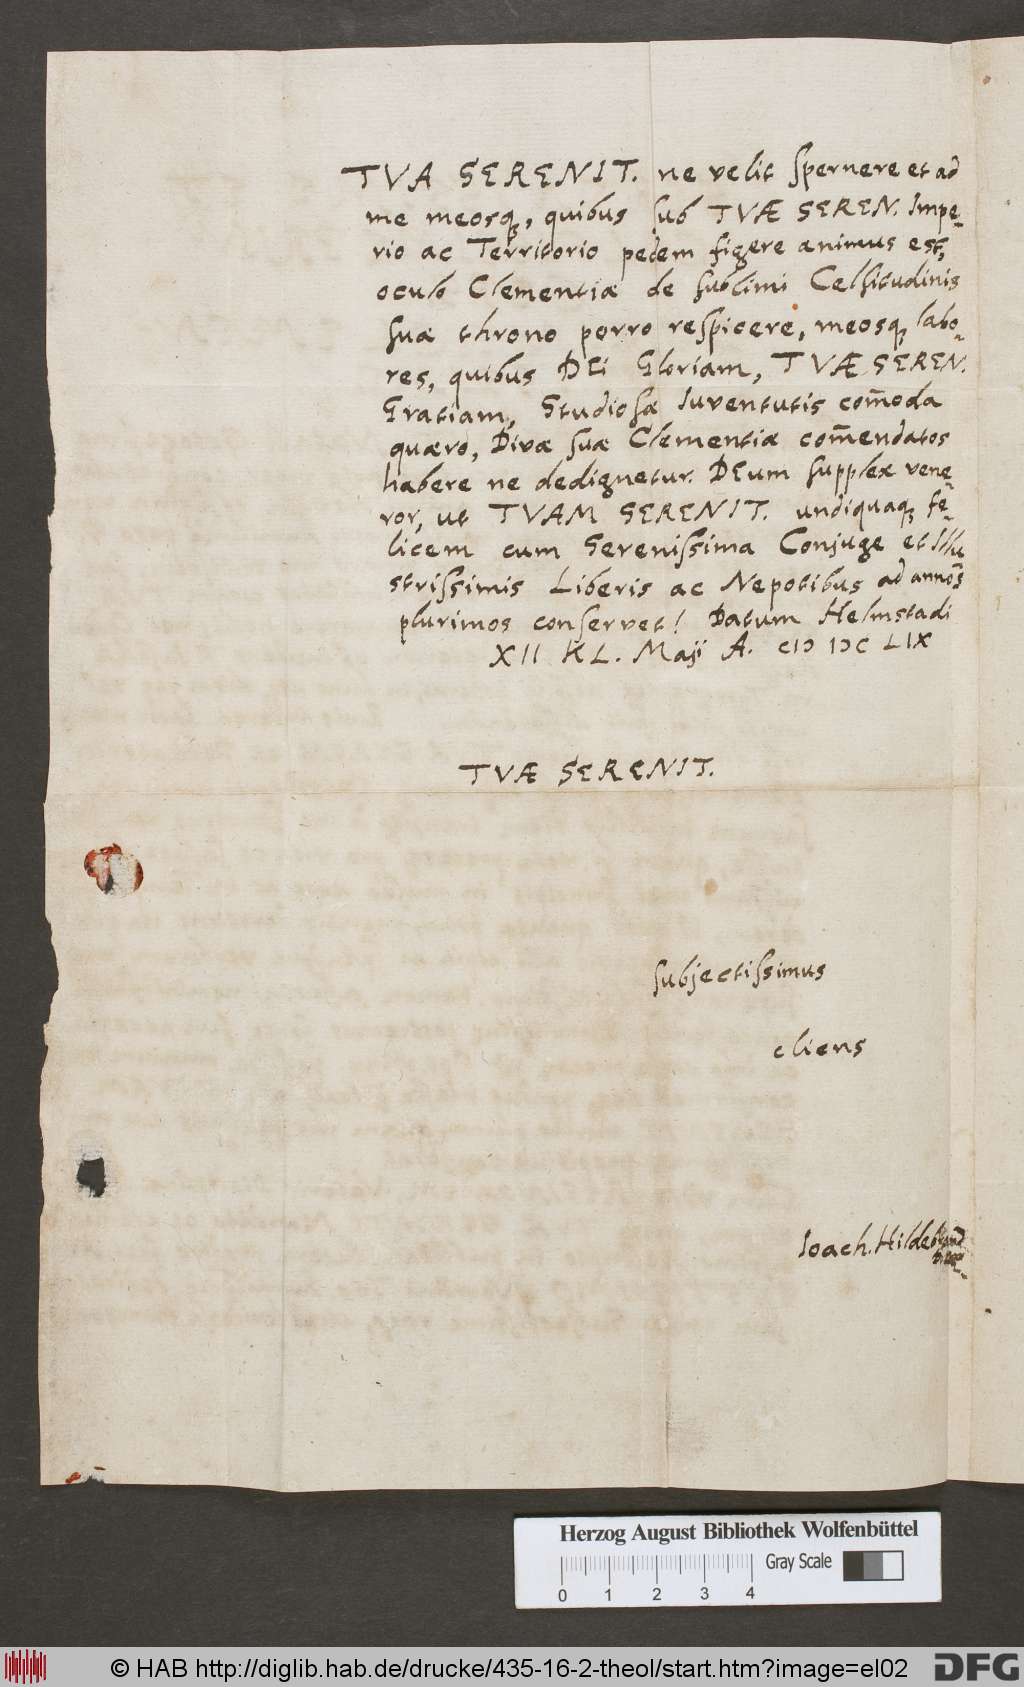 TVA SERENIT. ne velit spernere et ad
me meosq, quibus sub TVÆ SEREN. Impe-
rio ac Territorio pedem figere animus est,
oculo Clementiæ de sublimi Celsitudinis
suæ throno porro respicere, meosq, labo-
res, quibus DEi Gloriam, TVÆ SEREN.
Gratiam, Studiosæ Iuventutis com̄oda
quæro, Divæ suæ Clementiæ com̄endatos
habere ne dedignetur. DEum supplex vene-
ror, ut TVAM SERENIT. undiquaq, fe-
licem cum Serenissima Conjuge et Illu
strissimis Liberis ac Nepotibus ad annos
plurimos conservet! Datum Helmstadi
XII KL. Maji A. CIↃ IↃC LIX
TVÆ SERENIT.
subjectissimus
cliens
Ioach. Hildebrand
Herzog August Bibliothek Wolfenbüttel
Gray Scale
0 1 2 3 4
© HAB http://diglib.hab.de/drucke/435-16-2-theol/start.htm?image=el02
DFG